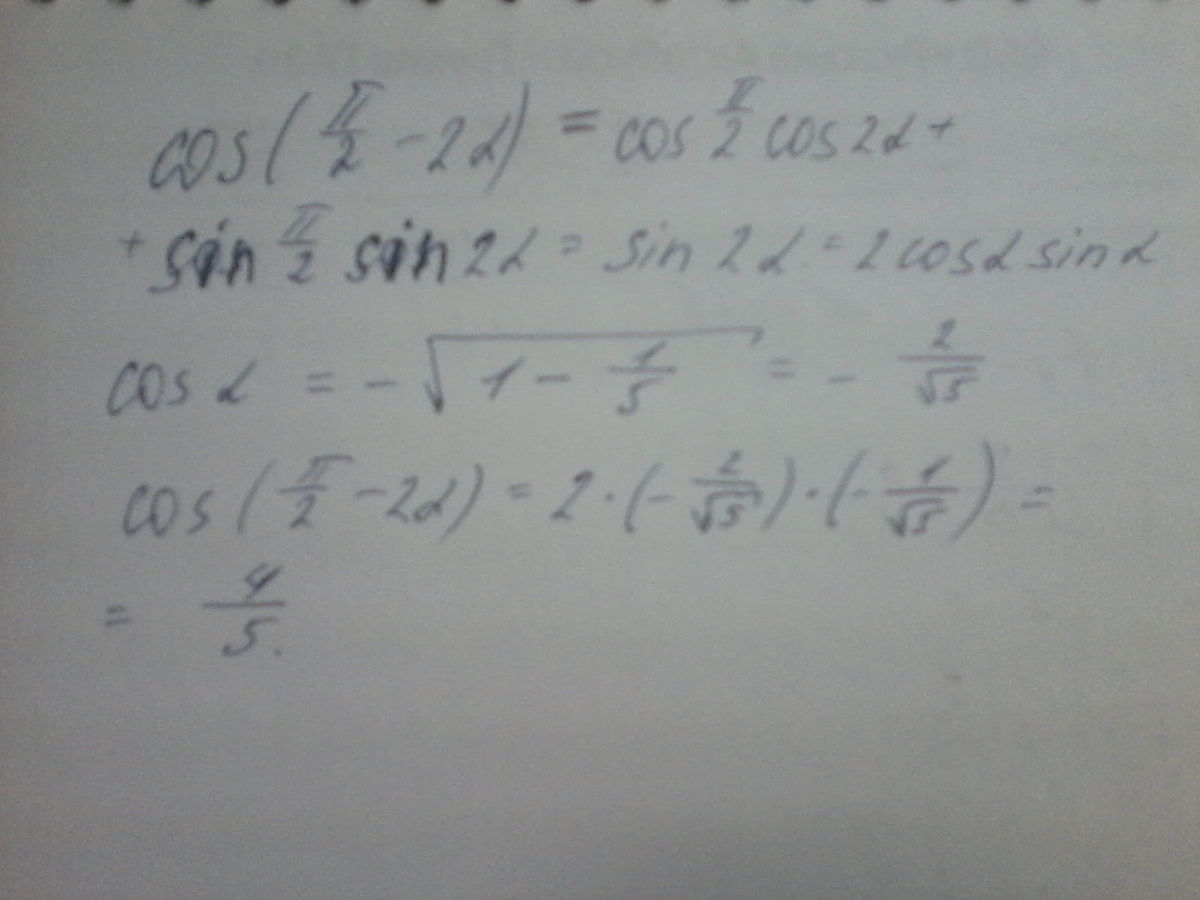 cos(π/2 - 2α) = cos π/2 cos 2α +
+ sin π/2 sin 2α = sin 2α = 2 cosα sin α
cos α = - √(1 - 1/5) = - 2/√5
cos(π/2 - 2α) = 2 · (- 2/√5) · (- 1/√5) =
= 4/5.